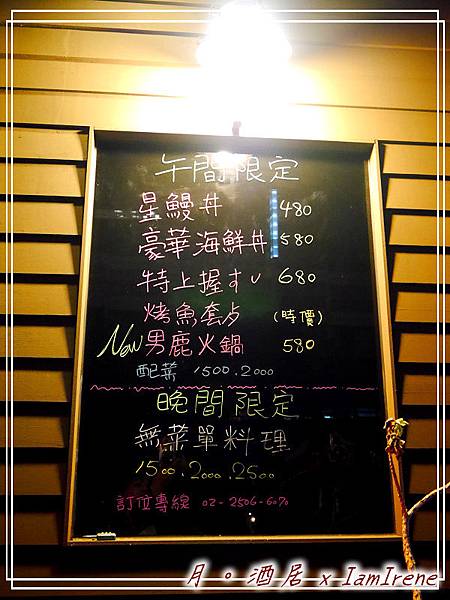 午間限定
星鰻丼 480
豪華海鮮丼 580
特上握すし 680
烤魚套占 (時價)
New 男鹿火鍋 580
配菜 1500.2000
晚間限定
無菜單料理
1500.2000.2500
訂位專線 02-2506-6070
月。酒居 x IamIrene